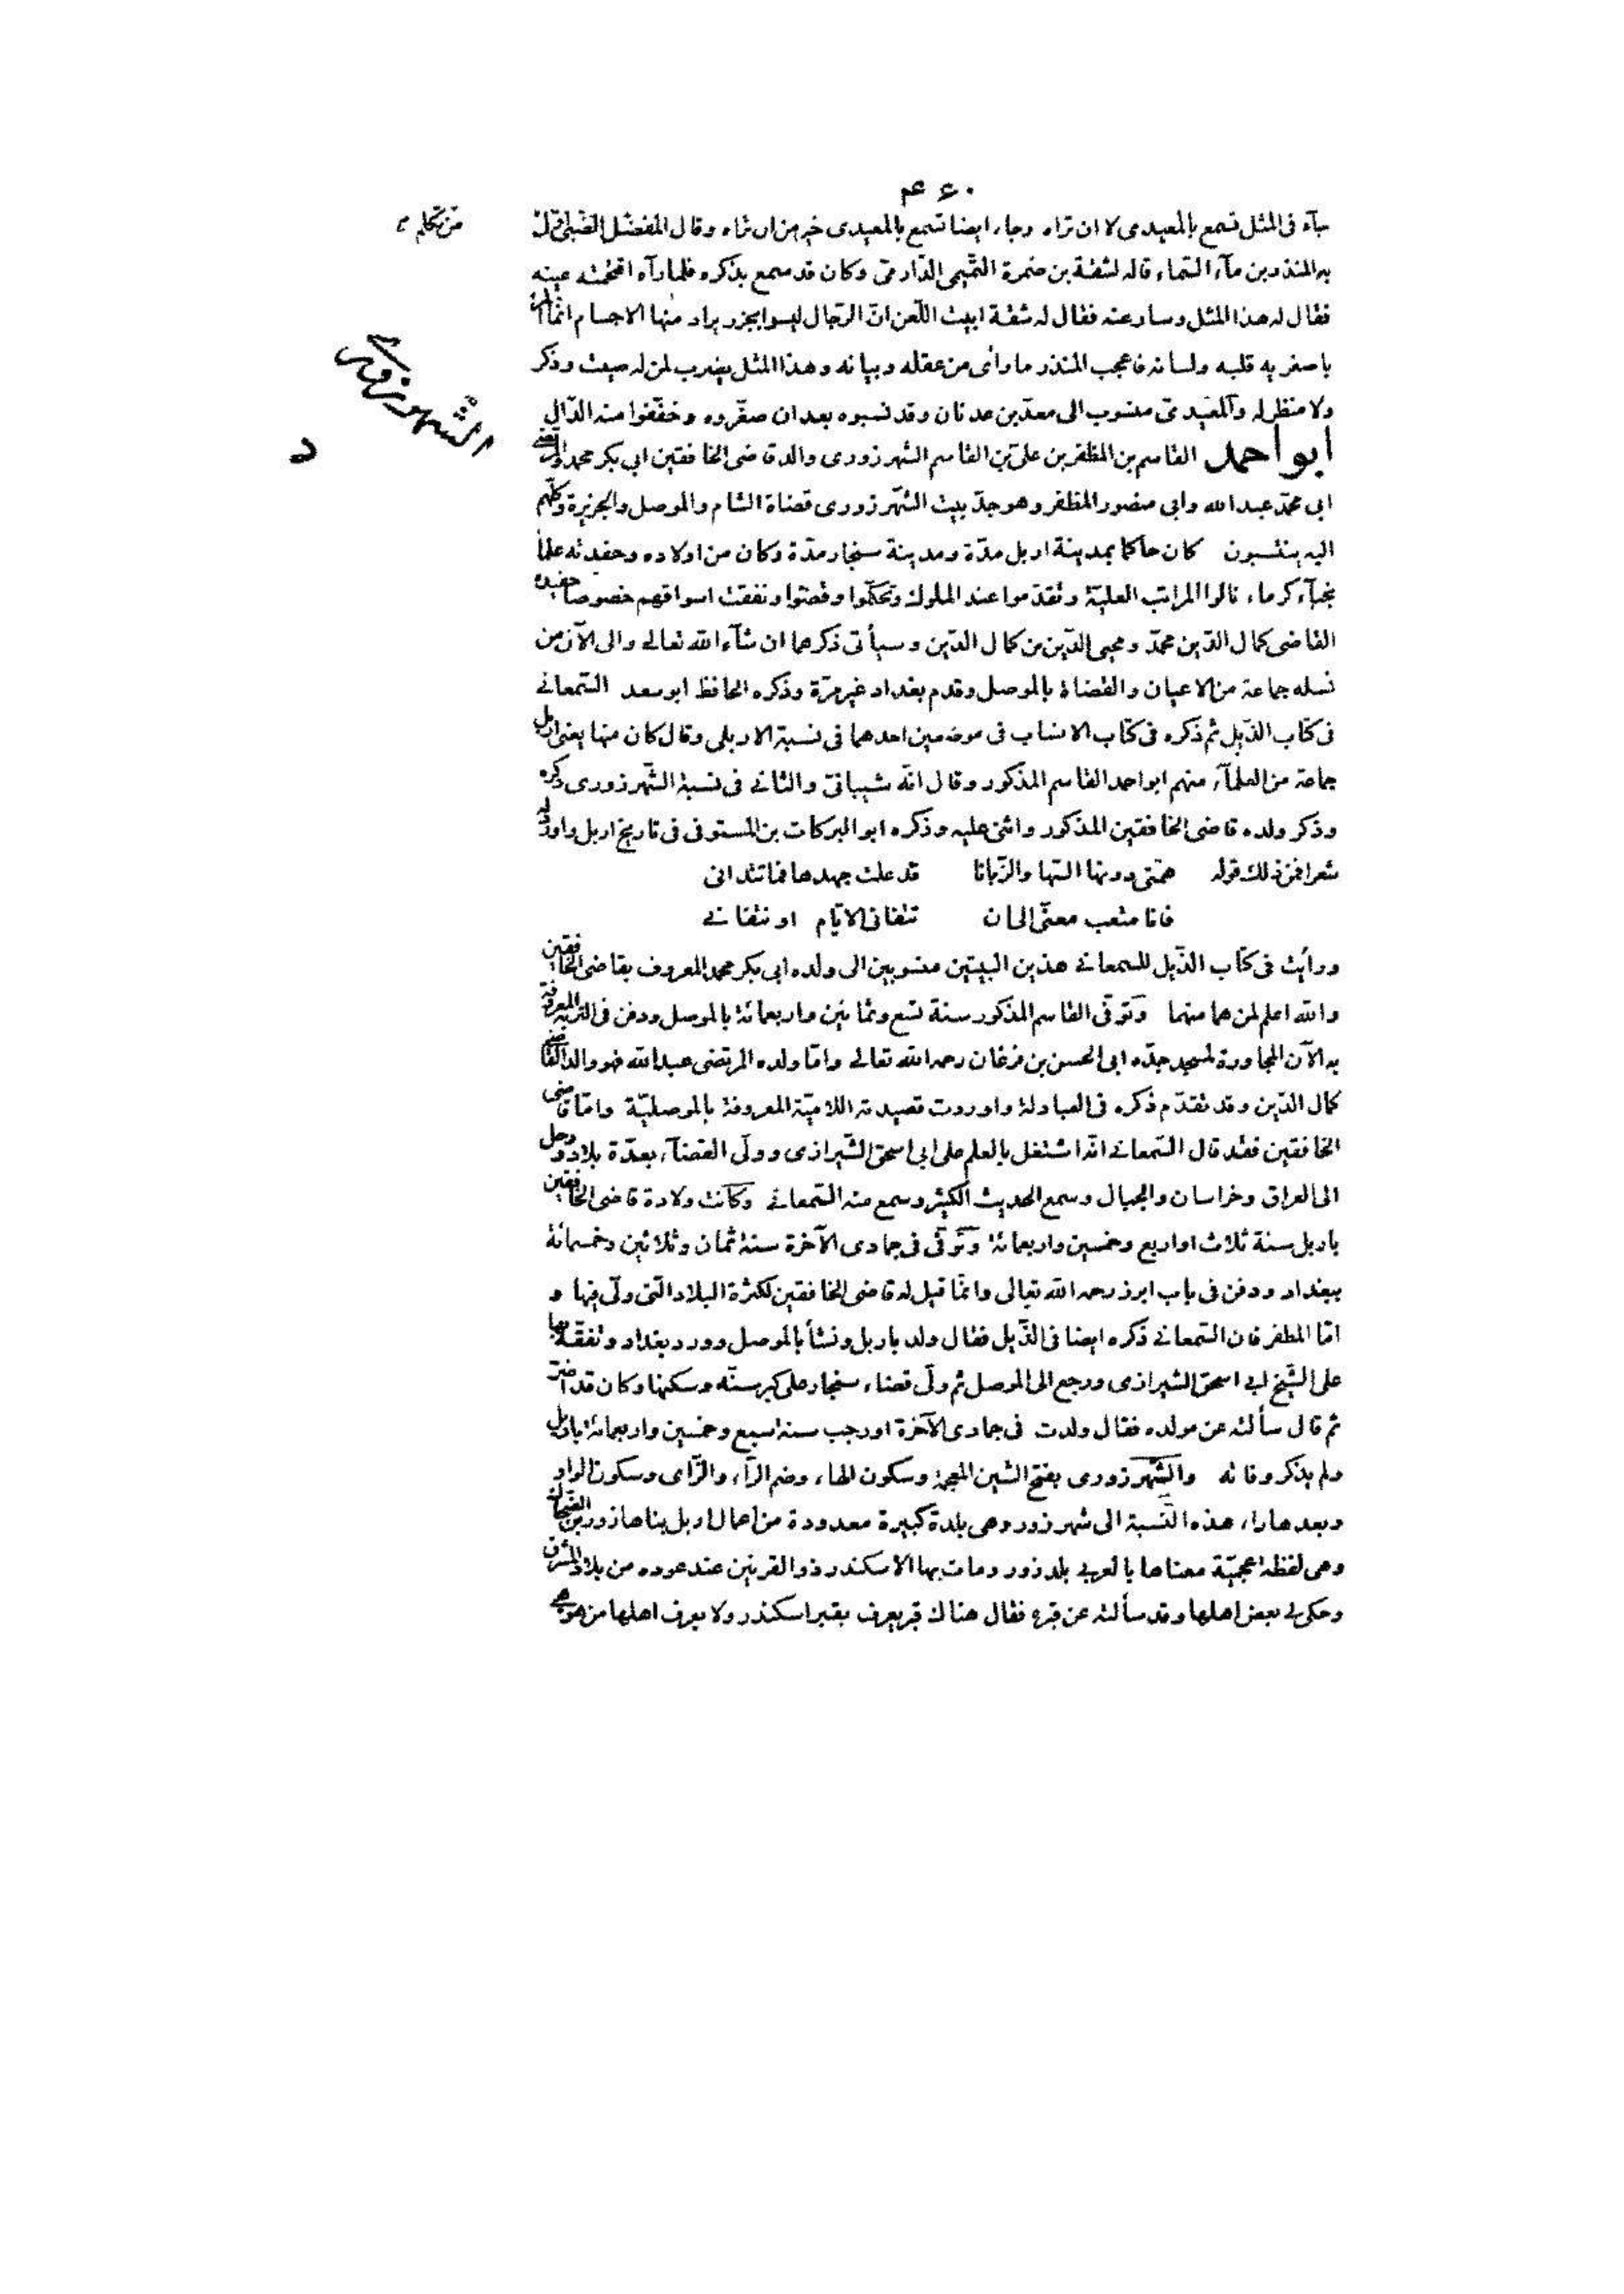 ۴۶۰
جآء فى المثل تسمع بالمعيدى لا ان تراه وجاء ايضا تسمع بالمعيدى خير من ان تراه وقال المفضّل الضّبّى
من تكلم
به المنذر بن مآء السّماء قاله لشقة بن ضمرة التّميمى الدّارمىّ وكان قد سمع بذكره فلما رآه اقتحمته عينه
فقال له هذا المثل وسار عنه فقال له شقة ابيت اللّعن انّ الرّجال ليسوا بجزر يراد منها الاجسام انّما المرء
باصغريه قلبه ولسانه فاعجب المنذر ما رأى من عقله وبيانه وهذا المثل يضرب لمن له صيت وذكر
ولا منظر له والمعيدىّ منسوب الى معدّ بن عدنان وقد نسبوه بعد ان صغّروه وخفّفوا منه الدّال
الشهرزورى
ابو احمد القاسم بن المظفر بن علىّ بن القاسم الشهرزورى والد قاضى الخافقين ابى بكر محمد والمرتضى
ابى محمّد عبد الله وابى منصور المظفر وهو جدّ بيت الشّهرزورى قضاة الشام والموصل والجزيرة وكلّهم
اليه ينتسبون كان حاكما بمدينة اربل مدّة ومدينة سنجار مدّة وكان من اولاده وحفدته علمآ
نجبآء كرماء نالوا المراتب العليّة وتقدّموا عند الملوك وتحكّموا وقضوا ونفقت اسواقهم خصوصا حفيده
القاضى كمال الدّين محمّد ومحيى الدّين بن كمال الدّين وسيأتى ذكرهما ان شآء الله تعالى والى الآن من
نسله جماعة من الاعيان والقضاة بالموصل وقدم بغداد غير مرّة وذكره الحافظ ابو سعد السّمعانى
فى كتاب الذّيل ثم ذكره فى كتاب الانساب فى موضعين احدهما فى نسبة الاربلى وقال كان منها يعنى اربل
جماعة من العلمآء منهم ابو احمد القاسم المذكور وقال انّه شيبانىّ والثانى فى نسبة الشّهرزورى ذكره
وذكر ولده قاضى الخافقين المذكور واثنى عليه وذكره ابو البركات بن المستوفى فى تاريخ اربل واورد له
شعرا فمن ذلك قوله همّتى دونها السّها والزّبانا قد علت جهدها فما تتدانى
فانا متعب معنّى الى ان تتفانى الايّام او نتفانى
ورأيت فى كتاب الذّيل للسمعانى هذين البيتين منسوبين الى ولده ابى بكر محمد المعروف بقاضى الخافقين
والله اعلم لمن هما منهما وتوفّى القاسم المذكور سنة تسع وثمانين واربعمائة بالموصل ودفن فى التربة المعروفة
به الآن المجاورة لمسجد جدّه ابى الحسن بن فرغان رحمه الله تعالى وامّا ولده المرتضى عبد الله فهو والد القاضى
كمال الدّين وقد تقدّم ذكره فى العبادلة واوردت قصيدته اللاميّة المعروفة بالموصليّة وامّا قاضى
الخافقين فقد قال السّمعانى انّه اشتغل بالعلم على ابى اسحق الشّيرازى وولّى القضآء بعدّة بلاد ورحل
الى العراق وخراسان والجبال وسمع الحديث الكثير وسمع منه السّمعانى وكانت ولادة قاضى الخافقين
باربل سنة ثلاث او اربع وخمسين واربعمائة وتوفّى فى جمادى الآخرة سنة ثمان وثلاثين وخمسمائة
ببغداد ودفن فى باب ابرز رحمه الله تعالى وانّما قيل له قاضى الخافقين لكثرة البلاد الّتى ولّى فيها و
امّا المظفر فان السّمعانى ذكره ايضا فى الذّيل فقال ولد باربل ونشأ بالموصل وورد بغداد وتفقّه بها
على الشّيخ ابى اسحق الشيرازى ورجع الى الموصل ثم ولّى قضاء سنجار على كبر سنّه وسكنها وكان قد اضرّ
ثم قال سألته عن مولده فقال ولدت فى جمادى الآخرة او رجب سنة سبع وخمسين واربعمائة باربل
ولم يذكر وفاته والشّهرزورى بفتح الشين المعجمة وسكون الهاء وضم الرّاء والزّاى وسكون الواو
وبعدها راء هذه النّسبة الى شهرزور وهى بلدة كبيرة معدودة من اعمال اربل بناها زور بن الضحّاك
وهى لفظة عجميّة معناها بالعربى بلد زور ومات بها الاسكندر ذو القرنين عند عوده من بلاد المشرق
وحكى لى بعض اهلها وقد سألته عن قبره فقال هناك قبر يعرف بقبر اسكندر ولا يعرف اهلها من هو